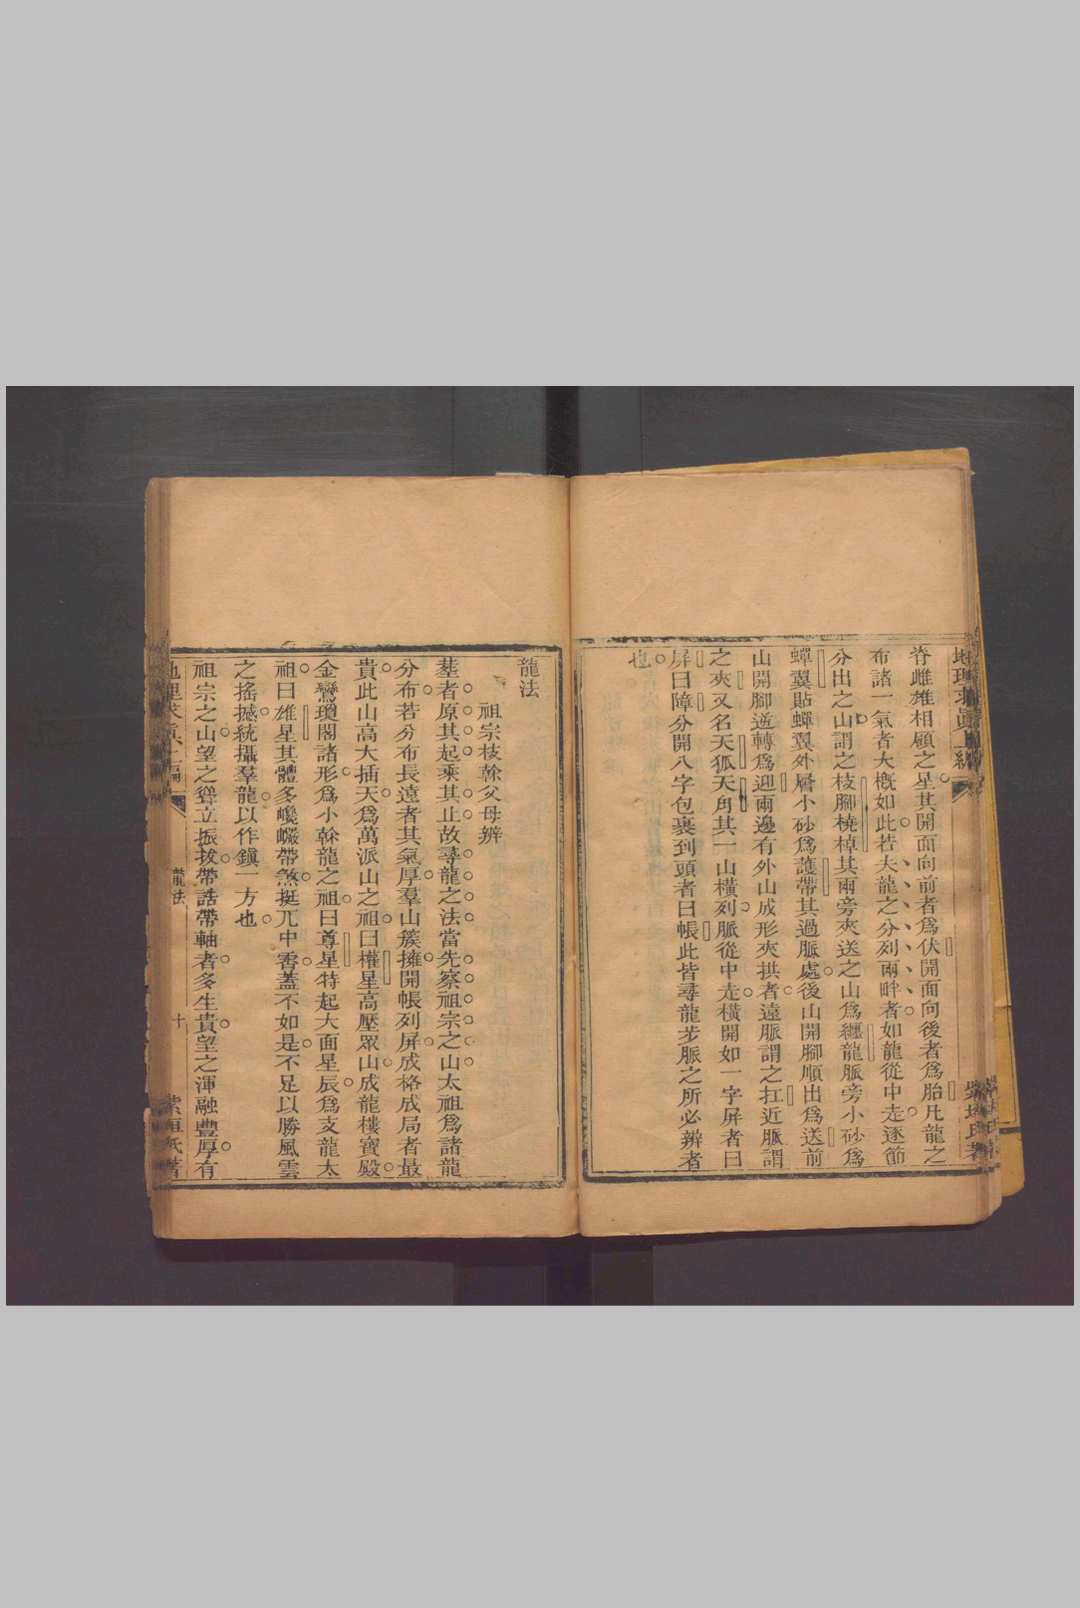 地理求眞上編
脊雌雄相顧之星其開面向前者爲伏開面向後者爲胎凡龍之
布諸一氣者大槪如此若夫龍之分列兩畔者如龍從中走逐節
分出之山謂之枝腳橈棹其兩旁夾送之山爲纏龍脈旁小砂爲
蟬翼貼蟬翼外層小砂爲護帶其過脈處後山開腳順出爲送前
山開腳逆轉爲迎兩邊有外山成形夾拱者遠脈謂之扛近脈謂
之夾又名天狐天角其一山橫列脈從中走橫開如一字屏者曰
屏曰障分開八字包裹到頭者曰帳此皆尋龍步脈之所必辨者
也
龍法
祖宗枝幹父母辨
葬者原其起乘其止故尋龍之法當先察祖宗之山太祖爲諸龍
分布若分布長遠者其氣厚羣山簇擁開帳列屏成格成局者最
貴此山高大插天爲萬派山之祖曰權星高壓眾山成龍樓寶殿
金鸞瓊閣諸形爲小幹龍之祖曰尊星特起大面星辰爲支龍太
祖曰雄星其體多巉巖帶煞挺兀中香蓋不如是不足以勝風雲
之搖撼統攝羣龍以作鎭一方也
祖宗之山望之聳立振拔帶誥帶軸者多生貴望之渾融豐厚有
地理求眞上編
龍法
十
紫垣氏著